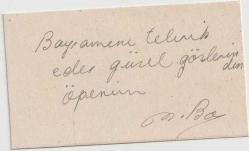 Bayramını tebrik
eder güzel gözlerin
den
öperim